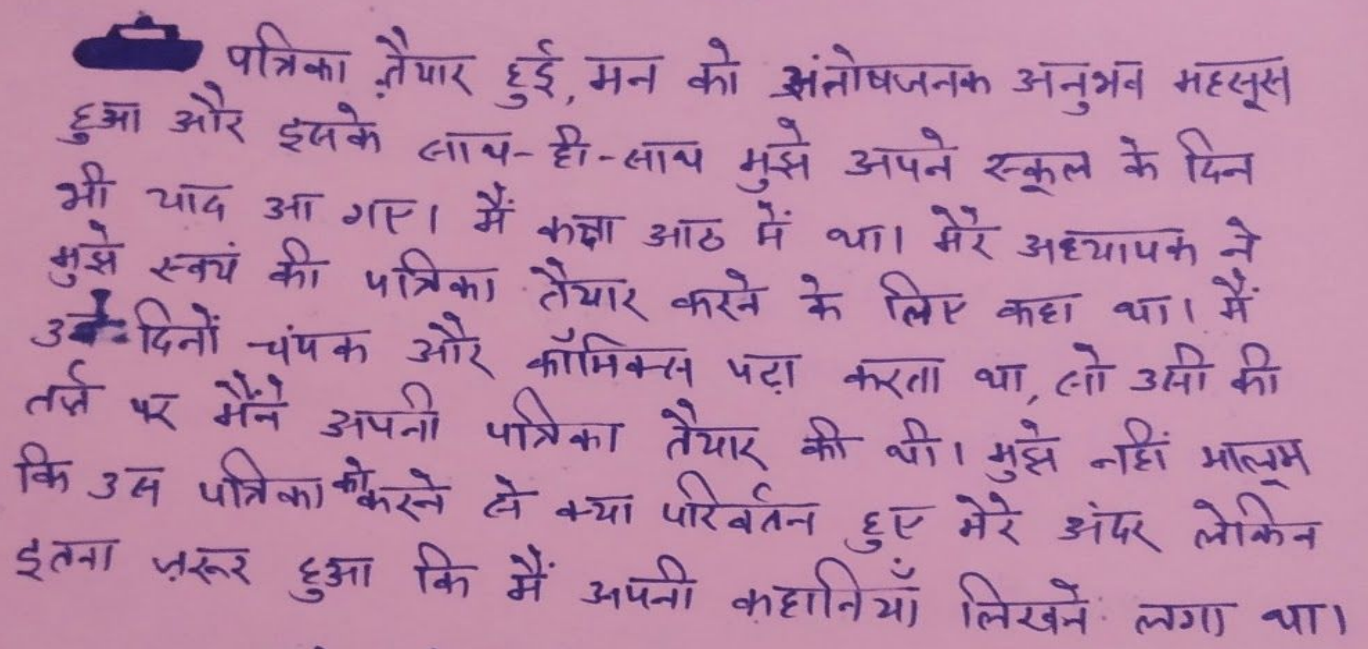 पत्रिका तैयार हुई, मन को संतोषजनक अनुभव महसूस
हुआ और इसके साथ-ही-साथ मुझे अपने स्कूल के दिन
भी याद आ गए। मैं कक्षा आठ में था। मेरे अध्यापक ने
मुझे स्वयं की पत्रिका तैयार करने के लिए कहा था। मैं
दिनों चंपक और कॉमिक्स पढ़ा करता था, सो उसी की
तर्ज़ पर मैंने अपनी पत्रिका तैयार की थी। मुझे नहीं मालूम
कि उस पत्रिका को करने से क्या परिवर्तन हुए मेरे अंदर लेकिन
इतना ज़रूर हुआ कि मैं अपनी कहानियाँ लिखने लगा था।